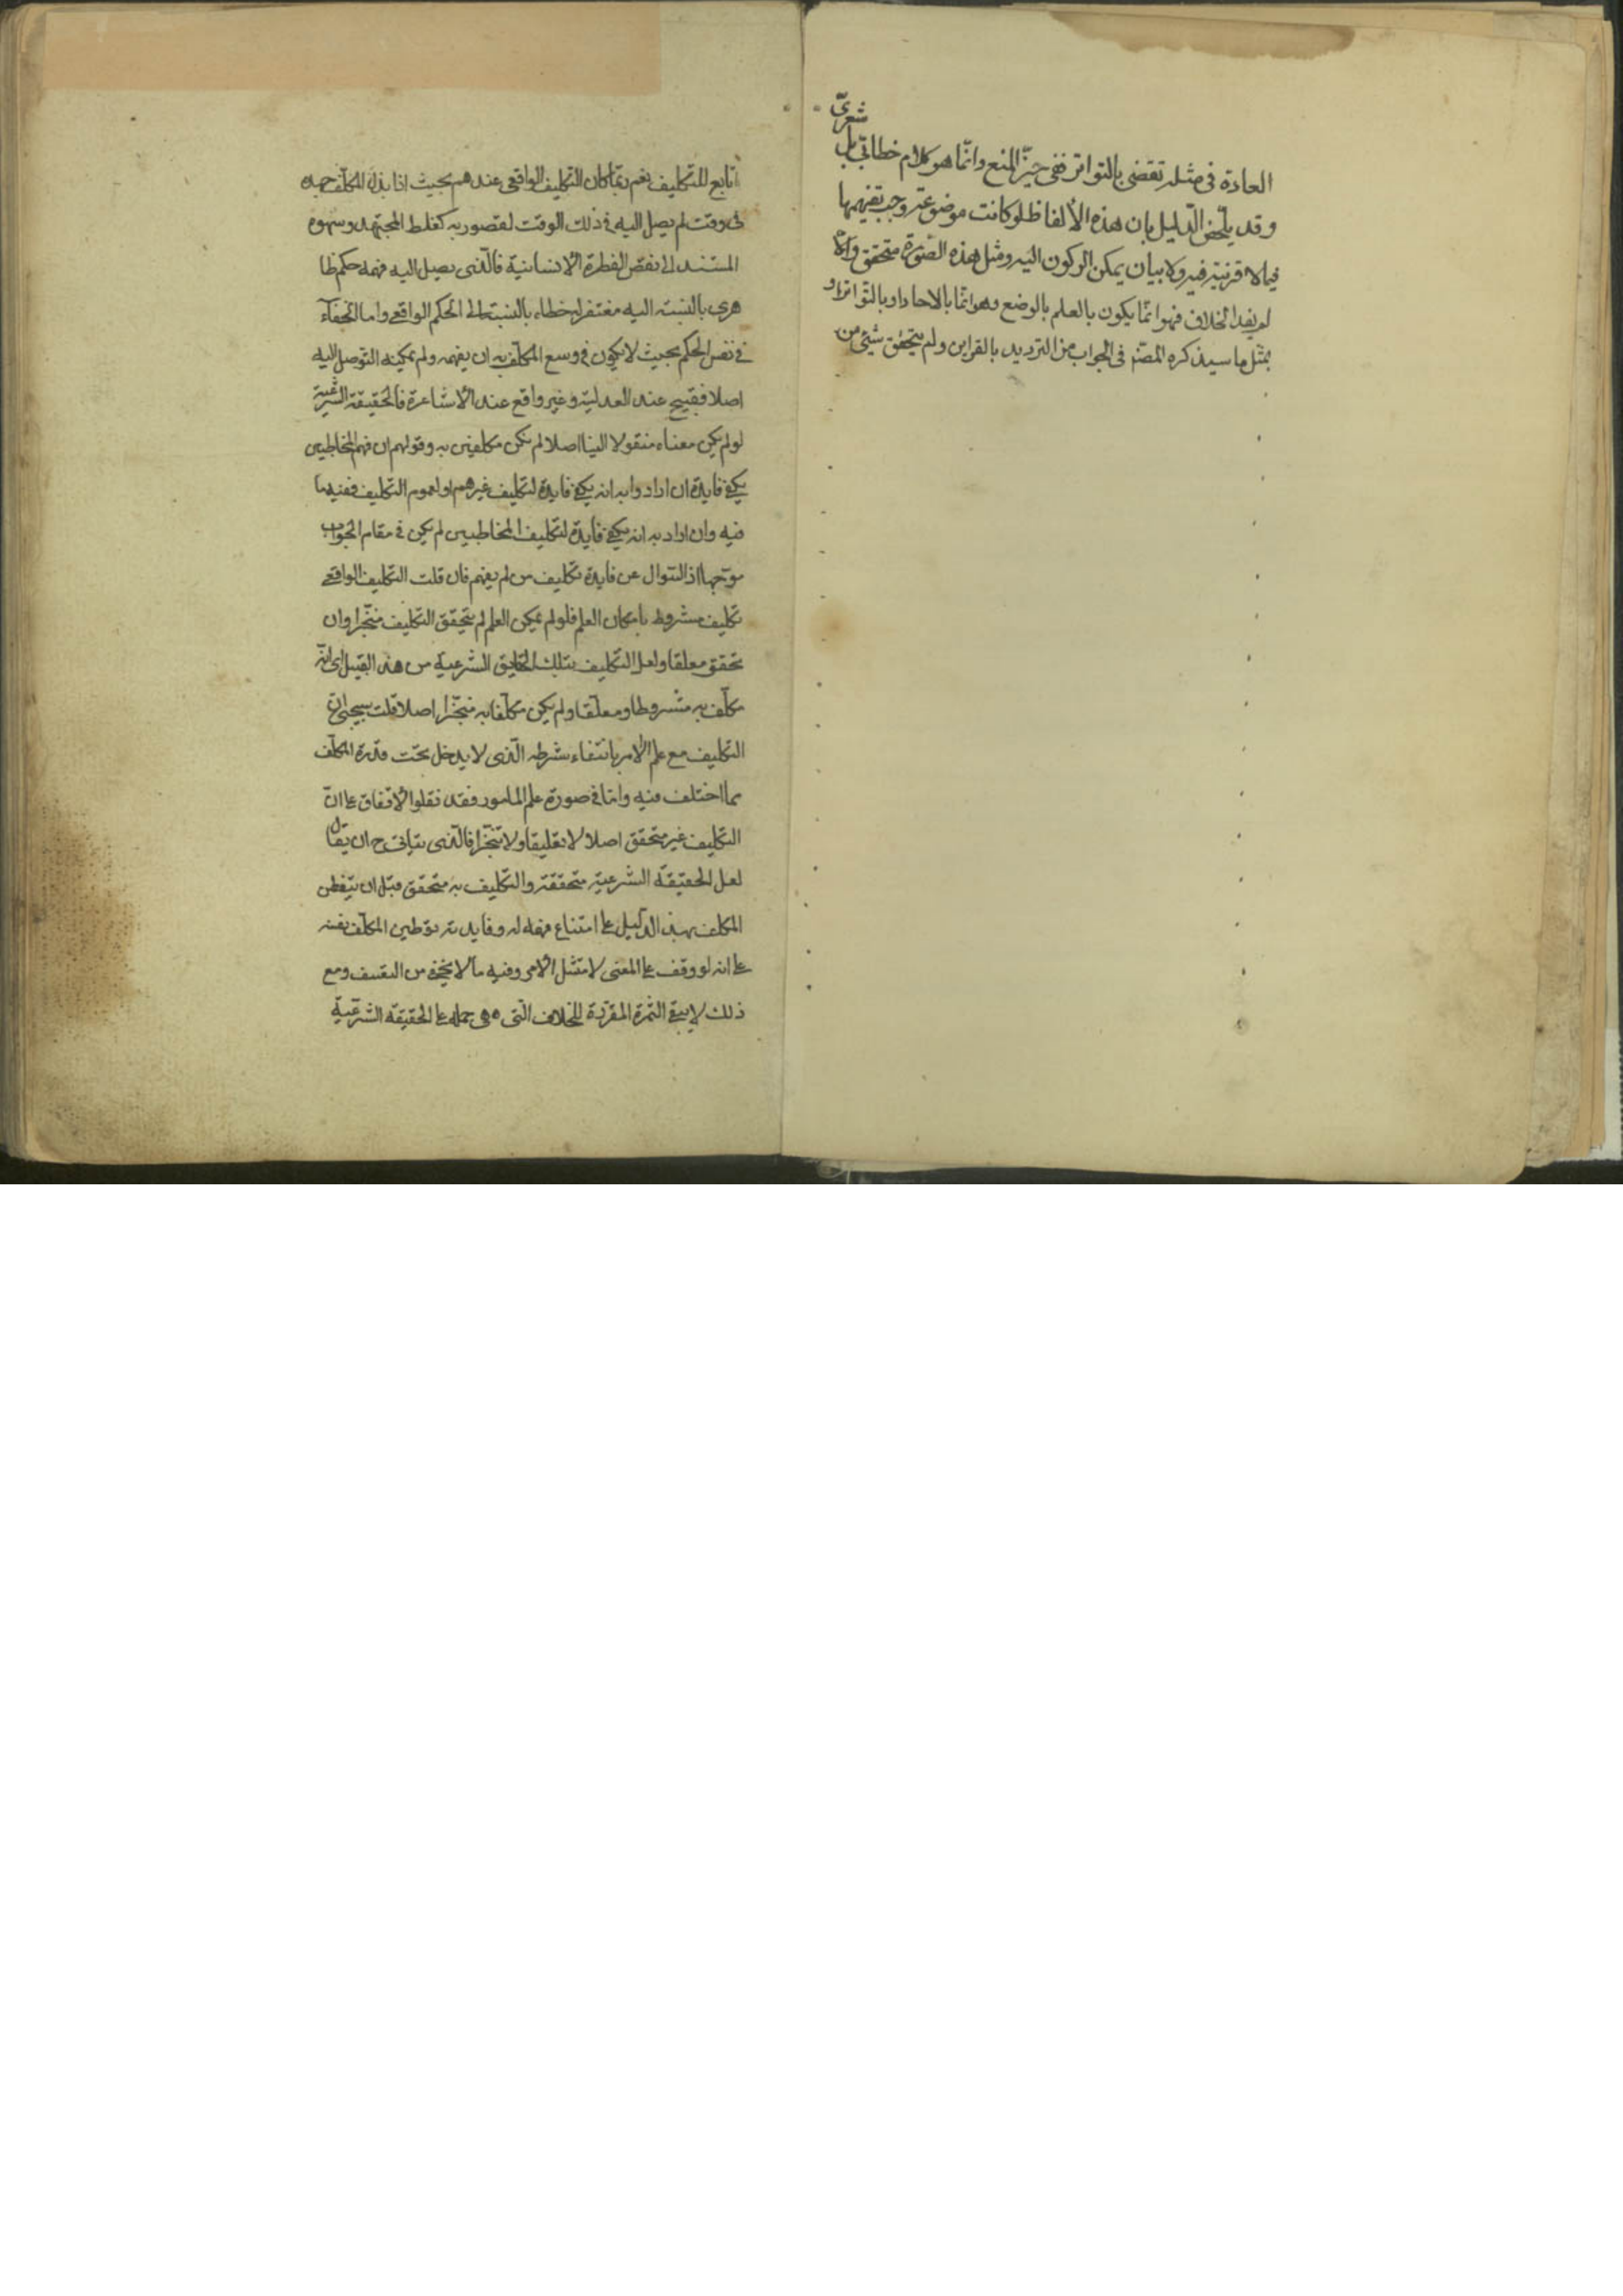 العادة فى مثله تقضى بالتواتر ففى حيّز المنع وانّما هو كلام خطابىّ بل
شعرىّ
وقد يلخّص الدّليل بان هذه الألفاظ لو كانت موضوعة وجب تفهيمها
فيما لا قرينة فيه ولا بيان يمكن الركون اليه ومثل هذه الصّورة متحقق والّا
لم يفد الخلاف فهو انّما يكون بالعلم بالوضع وهو انّما بالاحاد او بالتّواتر او
بمثل ما سيذكره المصنّف فى الجواب من الترديد بالقراين ولم يتحقق شيئ من
تابع للتكليف نعم ربّما كان التكليف الواقعى عندهم بحيث اذا بذل المكلّف جهده
فى وقت لم يصل اليه فى ذلك الوقت لقصور به كغلط المجتهد وسهوه
المستند الى نقص الفطرة الانسانية فالّذى يصل اليه فهمه حكم ظا
هرى بالنسبة اليه مغتفر له خطاء بالنسبة الى الحكم الواقعى واما الخفاء
فى نفس الحكم بحيث لا يكون فى وسع المكلّف به ان يفهمه ولم يمكنه التوصل اليه
اصلا فقبيح عند العدلية وغير واقع عند الاشاعرة فالحقيقة الشّرعيّة
لو لم يكن معناه منقولا الينا اصلا لم نكن مكلفين به وقولهم ان فهم المخاطبين
يكفى فايدة ان ارادوا به انه يكفى فايدة لتكليف غيرهم او لعموم التكليف ففيه ما
فيه وان اراد به انه يكفى فايدة لتكليف المخاطبين لم يكن فى مقام الجواب
موجّها اذ السّوال عن فايدة تكليف من لم يفهم فان قلت التكليف الواقعى
تكليف مشروط بامكان العلم فلو لم يمكن العلم لم يتحقق التكليف منجّزا وان
تحقق معلقا ولعل التكليف بتلك الحقايق الشرعية من هذا القبيل اى انّه
مكلّف به مشروطا ومعلّقا ولم يكن مكلّفا به منجّزا اصلا قلت سيجئ ان
التكليف مع علم الآمر بانتفاء شرطه الّذى لا يدخل تحت قدرة المكلّف
مما اختلف فيه وامّا فى صورة علم المامور فقد نقلوا الاتّفاق على انّ
التكليف غير متحقق اصلا لا تعليقا ولا تنجّزا فالّذى يتاتى ح ان يقال
لعل الحقيقة الشرعيّة متحققة والتكليف به متحقق قبل ان يتفطن
المكلف بهذا الدّليل على امتناع فهمه له وفايدته توطين المكلّف نفسه
على انه لو وقف على المعنى لامتثل الامر وفيه ما لا يخفى من التعسف ومع
ذلك لا يبقى الثمرة المقرّرة للخلاف الّتى هى حمله على الحقيقة الشّرعيّة